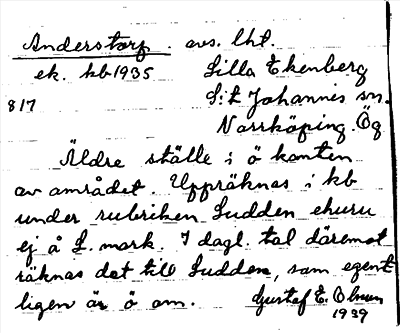 Anderstorp. avs. lht.
ek. kb 1935 Lilla Ekenberg
8/7 S:t Johannis sn.
Norrköping. Ög
Äldre ställe i ö kanten
av området. Uppräknas i kb
under rubriken Sudden ehuru
ej å L. mark. I dagl. tal däremot
räknas det till Sudden, som egent
ligen är ö om. Gustaf E. Olsson
1939